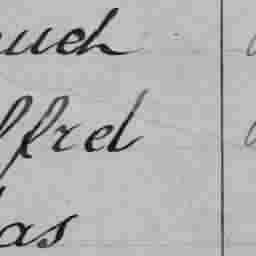 uch
lfred
as